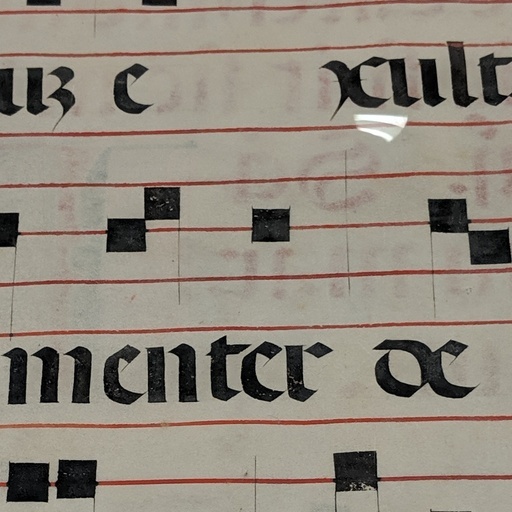 uz e xult
menter de